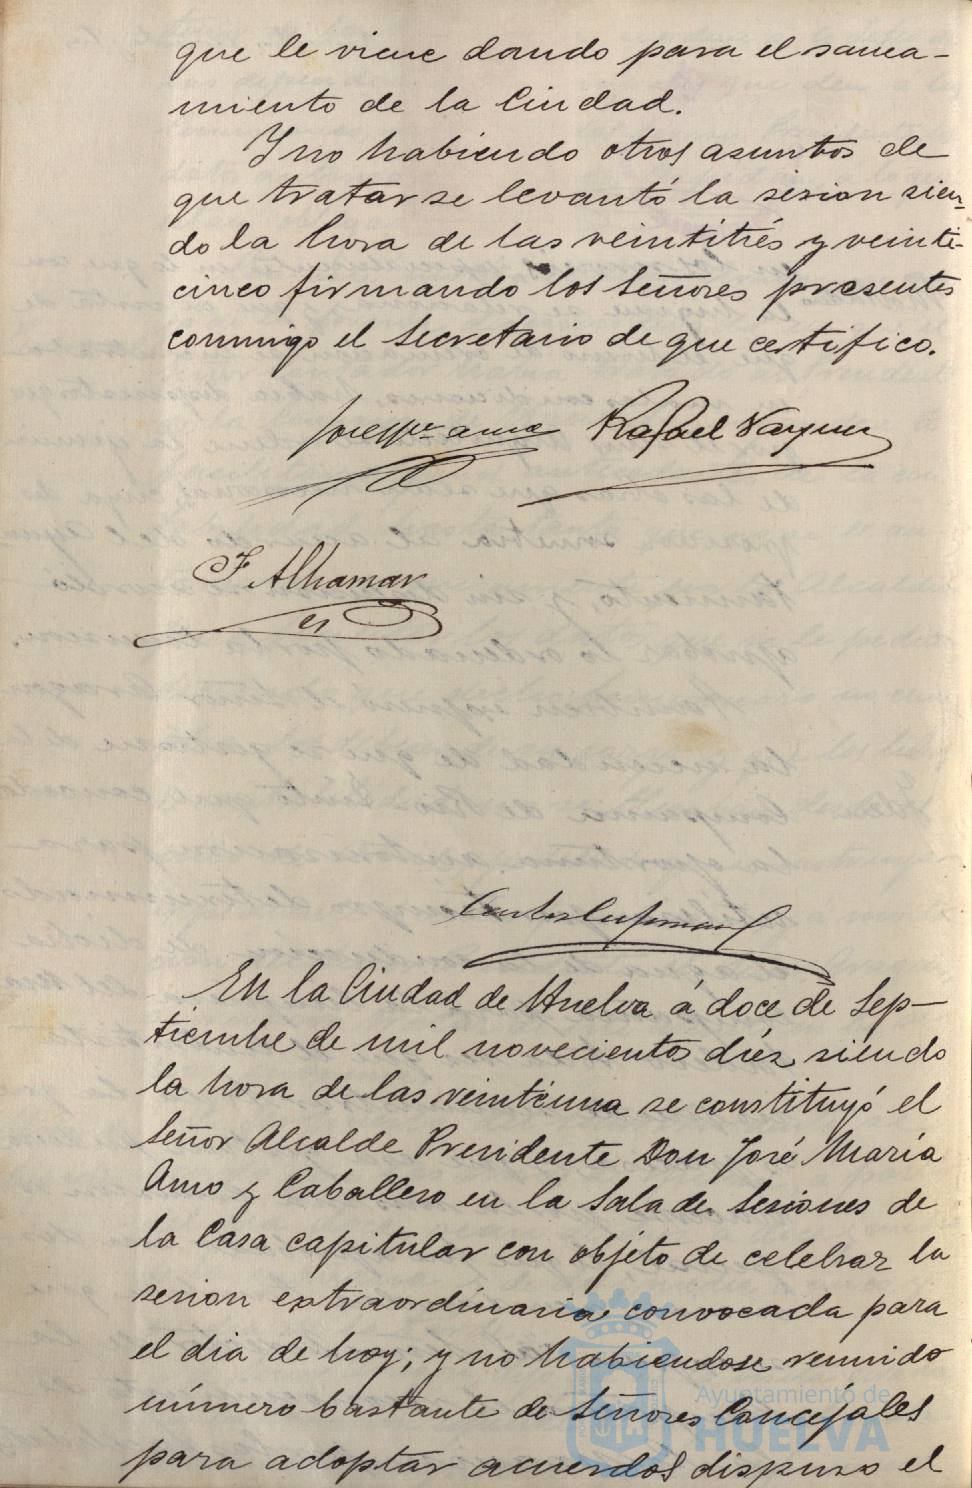 que le viene dando para el sanea-
miento de la Ciudad.
Y no habiendo otros asuntos de
que tratar se levantó la sesion sien-
do la hora de las veintitrés y veinti-
cinco firmando los Señores presentes
conmigo el Secretario de que certifico.
Rafael Vazquez
F Alhamar
En la Ciudad de Huelva á doce de Sep-
tiembre de mil novecientos diéz siendo
la hora de las veintiuna se constituyó el
Señor Alcalde Presidente Don José María
Amo y Caballero en la Sala de Sesiones de
la Casa capitular con objeto de celebrar la
sesion extraordinaria convocada para
el dia de hoy; y no habiendose reunido
número bastante de Señores Concejales
para adoptar acuerdos dispuso el
Ayuntamiento de
HUELVA